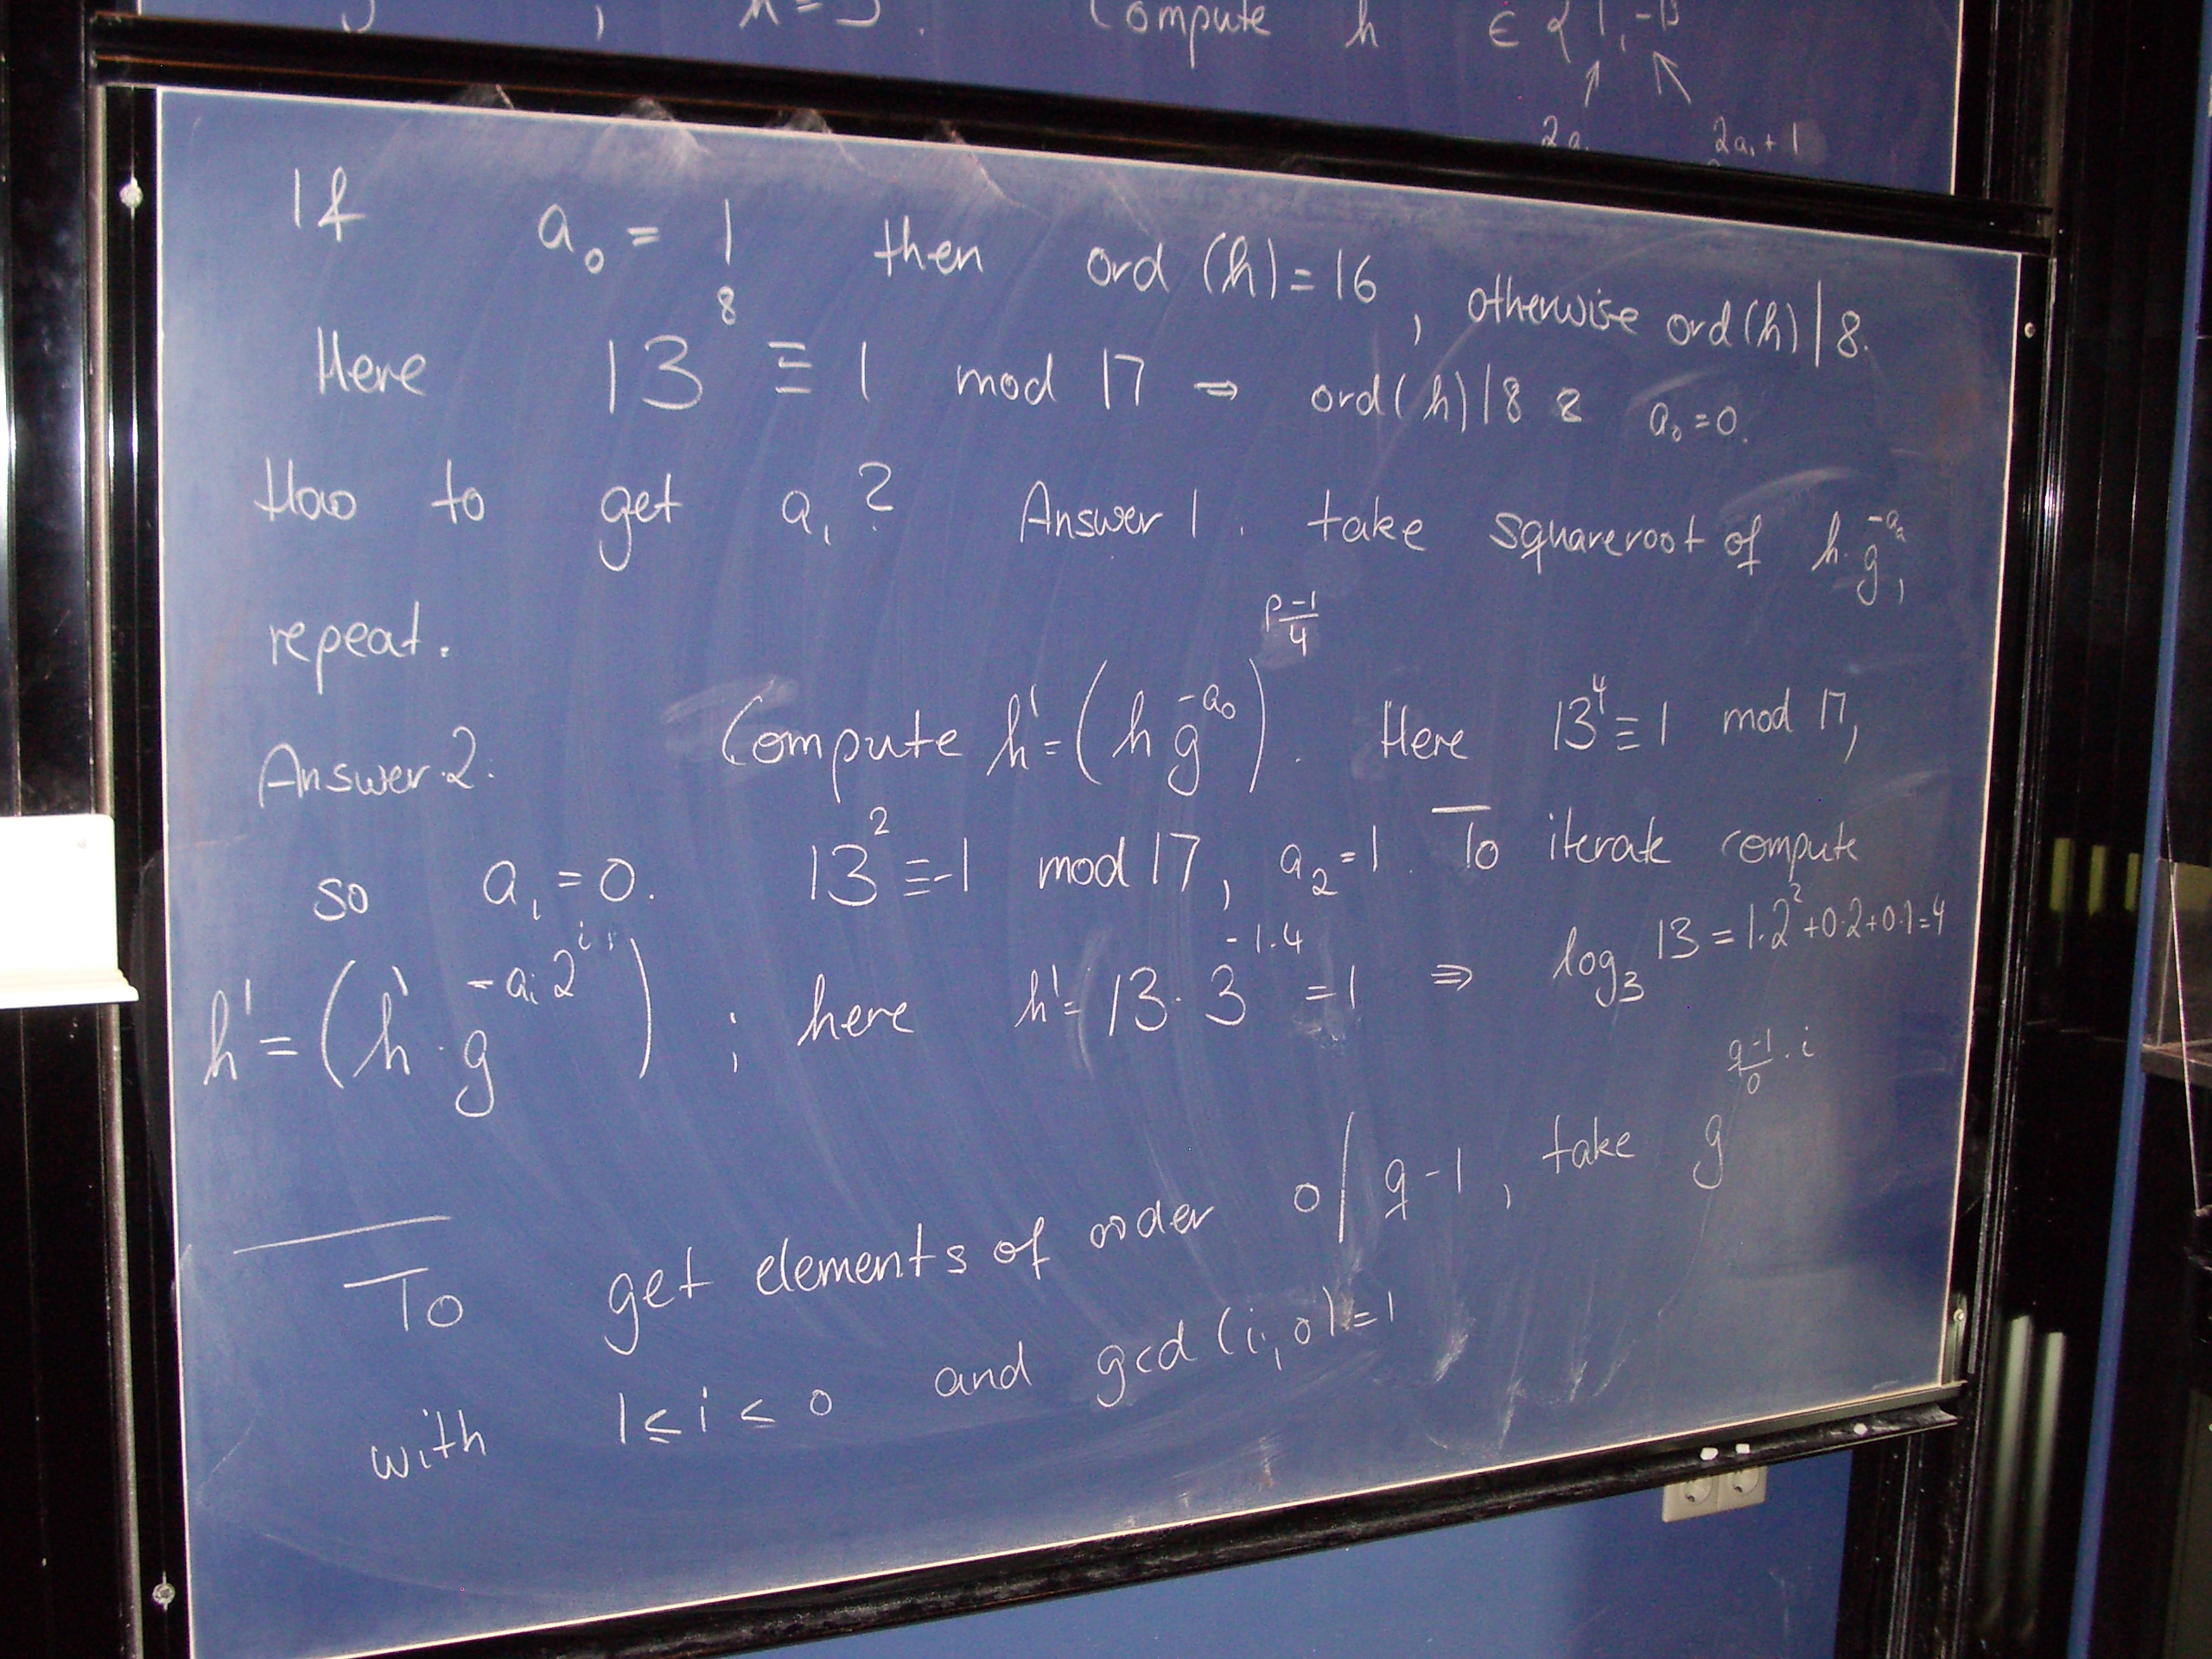 Compute h ∈ {1, -1}
2a₁ 2a₁ + 1
If a₀ = 1 then ord (h) = 16, otherwise ord(h) | 8.
Here 13⁸ ≡ 1 mod 17 ⇒ ord(h) | 8 & a₀ = 0.
How to get a₁? Answer 1. take squareroot of h·g^(-a₀),
repeat.
Answer 2. Compute h' = (h g^(-a₀))^((p-1)/4). Here 13⁴ ≡ 1 mod 17,
so a₁ = 0. 13² ≡ -1 mod 17, a₂ = 1. To iterate compute
h' = (h'·g^(-aᵢ2^i)) ; here h' = 13·3^(-1·4) = 1 ⇒ log₃ 13 = 1·2² + 0·2 + 0·1 = 4
To get elements of order o | q-1, take g^((q-1)/o · i)
with 1 ≤ i < o and gcd (i, o) = 1